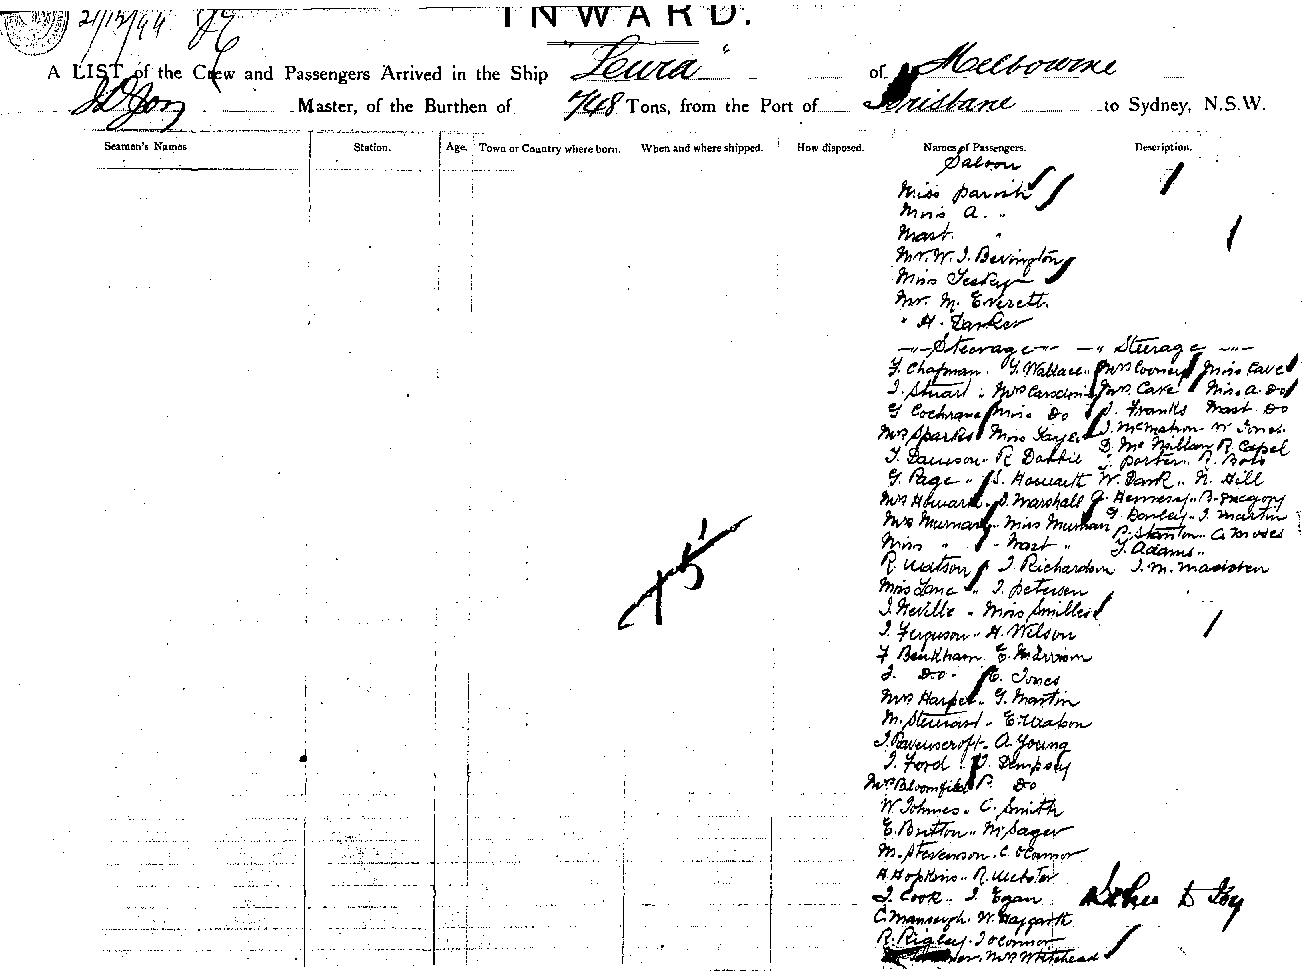 21/12/94
INWARD.
A LIST of the Crew and Passengers Arrived in the Ship "Leura" of Melbourne
Master, of the Burthen of 748 Tons, from the Port of Brisbane to Sydney, N.S.W.
Seamen's Names Station. Age. Town or Country where born. When and where shipped. How disposed. Names of Passengers. Description.
Saloon
Miss Parish
Miss A. "
Mast. "
Mr. W. J. Bevington
Miss
Mr. M. Everett.
" H. Tanker
Steerage Steerage
J. Chapman. G. Wallace Mrs Cooney Miss Cave
J. Stuart Mrs Carsdon Mrs. Cave Miss. A. Do
G Cochrane Miss Do J. Franks Mast. Do
Mrs Sparks Miss Sayer J. McMahon W Jones
J. Dawson R Dobbie D. McMillan R. Capel
G. Page S. Howarth J. Porter R. Boss
Mrs Howard J. Marshall W. Dark N. Hill
Mrs Murnan Miss Murnan J. Hennessy B. McGory
Miss " Mast " G. Barley J. Martin
R. Watson J. Richardson P. Stanton C. Moses
Miss Lane J. Petersen J. Adams
J. Neville Miss Smillie J. M.
J. Ferguson H. Wilson
F Beckham E. Merriom
J. Do E. Jones
Mrs Harper G. Martin
M. Steward E. Watson
J. Ravenscroft A. Young
J. Ford J. Dempsey
Mrs Bloomfield P. Do
W Johnes C. Smith
E. Britton M. Sager
M. Stevenson C. O'Connor
H Hopkins R. Webster
J. Cook J. Egan
C. W. Haggarth
R. Rigley J O'Connor
Mrs Whitehead